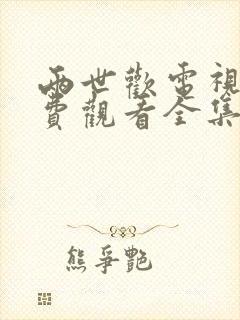 兩世歡電視
費觀看全集
熊爭艷